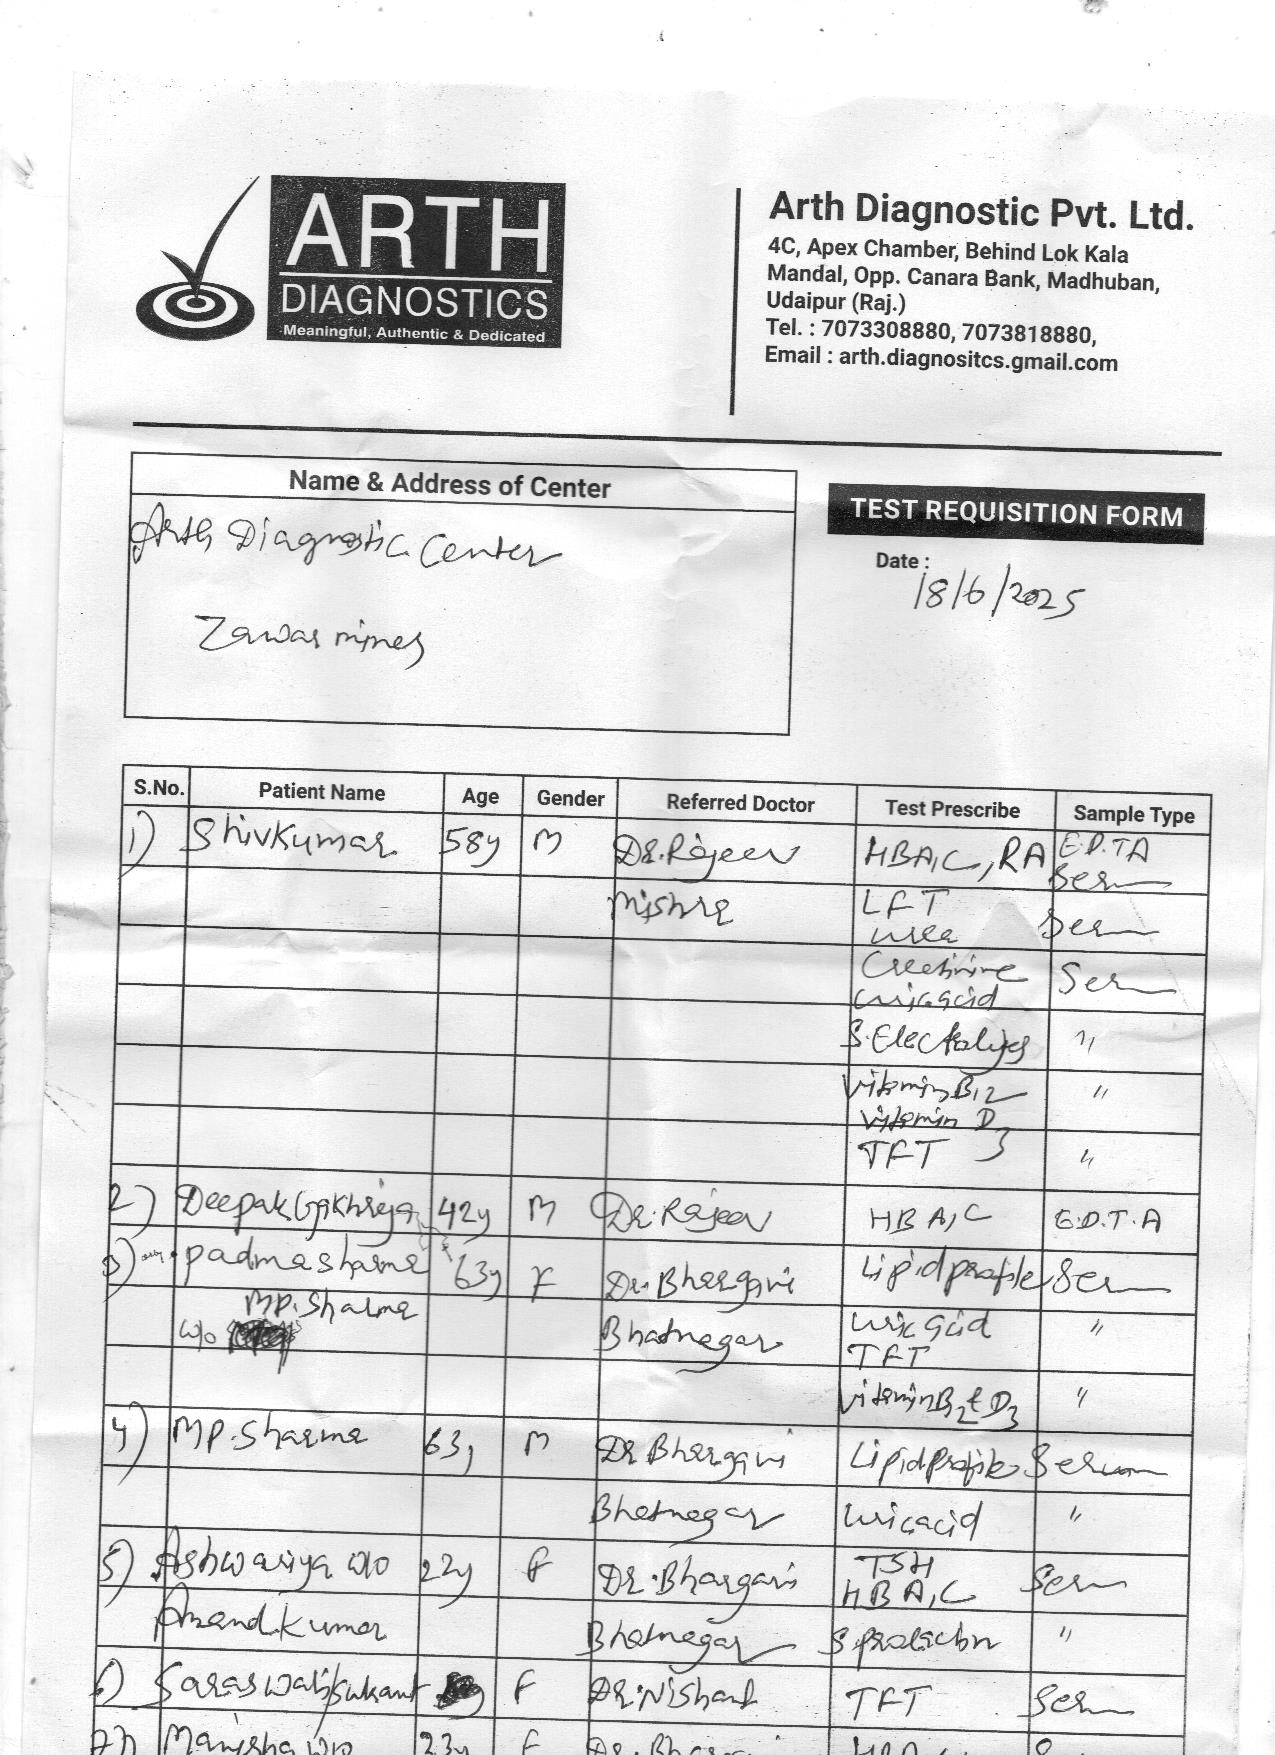 ARTH
DIAGNOSTICS
Meaningful, Authentic & Dedicated
Arth Diagnostic Pvt. Ltd.
4C, Apex Chamber, Behind Lok Kala
Mandal, Opp. Canara Bank, Madhuban,
Udaipur (Raj.)
Tel. : 7073308880, 7073818880,
Email : arth.diagnositcs.gmail.com
Name & Address of Center
Arth Diagnostic Center
Zawar mines
TEST REQUISITION FORM
Date :
18/6/2025
S.No. Patient Name Age Gender Referred Doctor Test Prescribe Sample Type
1) Shivkumar 58y M Dr. Rajeev HBA1C, RA E.D.TA
Serum
Mishra LFT
urea Serum
Creatinine
uric acid Serum
S. Electrolytes "
Vitamin B12 "
Vitamin D3
TFT "
2) Deepak Gakhreja 42y M Dr. Rajeev HBA1C E.D.T.A
3) padma sharma 63y F Dr. Bhargavi Lipid profile Serum
w/o MP. Sharma Bhatnagar uric acid "
TFT
vitamin B12 & D3 "
4) MP. Sharma 63y M Dr Bhargavi Lipid profile Serum
Bhatnagar uric acid "
5) Ashwariya w/o 22y F Dr. Bhargavi TSH
HBA1C Serum
Anand kumar Bhatnagar S. prolactin "
6) Saraswati/sukant F Dr. Nishant TFT Serum
7) Manisha w/o 23y F Dr. Bhargavi HBA1C